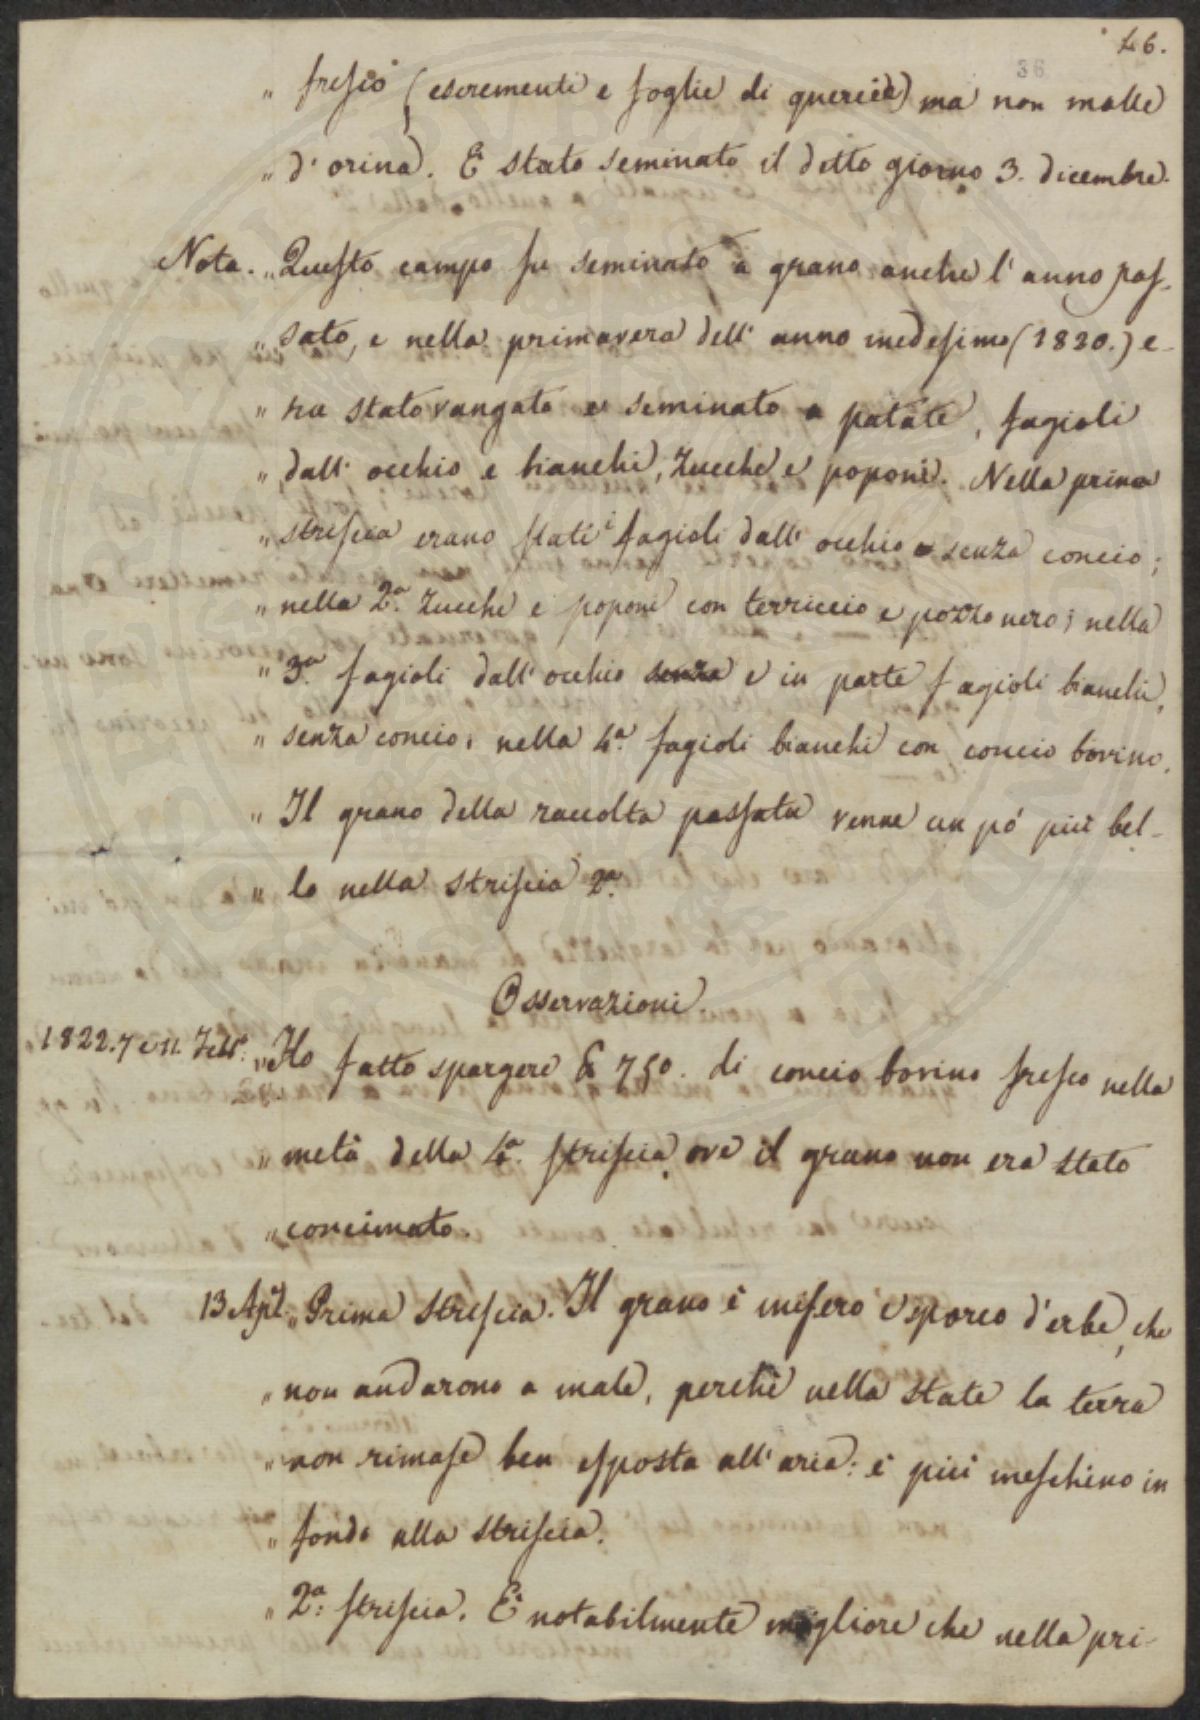 46.
36
„ fresco (escrementi e foglie di quercie) ma non molle
„ d'orina. È stato seminato il detto giorno 3. dicembre.
Nota. „ Questo campo fu seminato a grano anche l'anno pas-
„ sato, e nella primavera dell'anno medesimo (1820.) e-
„ ra stato vangato e seminato a patate, fagioli
„ dall'occhio e bianchi, zucche e poponi. Nella prima
„ striscia erano stati i fagioli dall'occhio e senza concio;
„ nella 2.a zucche e poponi con terriccio e pozzo nero; nella
„ 3.a fagioli dall'occhio senza e in parte fagioli bianchi,
„ senza concio; nella 4.a fagioli bianchi con concio bovino.
„ Il grano della raccolta passata venne un pò più bel-
„ lo nella striscia 2.a
Osservazioni.
1822. 7 e 11. Febb.: „ Ho fatto spargere ℔ 750. di concio bovino fresco nella
„ metà della 4.a striscia, ove il grano non era stato
„ concimato.
13 Aple. „ Prima striscia. Il grano è misero e sporco d'erbe, che
„ non andarono a male, perchè nella state la terra
„ non rimase ben esposta all'aria: è più meschino in
„ fondo alla striscia.
„ 2.a: striscia. È notabilmente migliore che nella pri-